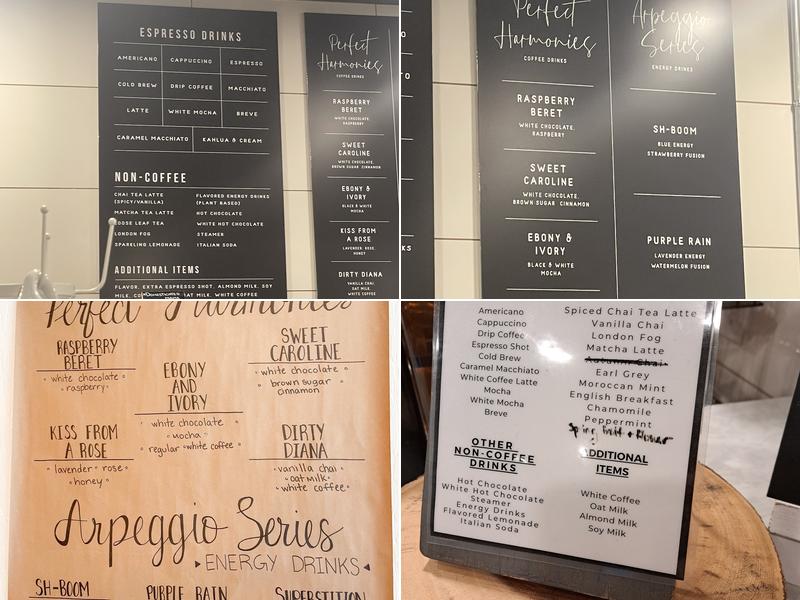 ESPRESSO DRINKS
AMERICANO CAPPUCCINO ESPRESSO
COLD BREW DRIP COFFEE MACCHIATO
LATTE WHITE MOCHA BREVE
CARAMEL MACCHIATO KAHLUA & CREAM
NON-COFFEE
CHAI TEA LATTE
(SPICY/VANILLA)
MATCHA TEA LATTE
LOOSE LEAF TEA
LONDON FOG
SPARKLING LEMONADE
FLAVORED ENERGY DRINKS
(PLANT BASED)
HOT CHOCOLATE
WHITE HOT CHOCOLATE
STEAMER
ITALIAN SODA
ADDITIONAL ITEMS
FLAVOR, EXTRA ESPRESSO SHOT, ALMOND MILK, SOY
MILK, OAT MILK, WHITE COFFEE
Perfect
Harmonies
COFFEE DRINKS
RASPBERRY
BERET
WHITE CHOCOLATE,
RASPBERRY
SWEET
CAROLINE
WHITE CHOCOLATE,
BROWN SUGAR CINNAMON
EBONY &
IVORY
BLACK & WHITE
MOCHA
KISS FROM
A ROSE
LAVENDER, ROSE,
HONEY
DIRTY DIANA
VANILLA CHAI,
OAT MILK,
WHITE COFFEE
Perfect
Harmonies
COFFEE DRINKS
RASPBERRY
BERET
WHITE CHOCOLATE,
RASPBERRY
SWEET
CAROLINE
WHITE CHOCOLATE,
BROWN SUGAR CINNAMON
EBONY &
IVORY
BLACK & WHITE
MOCHA
Arpeggio
Series
ENERGY DRINKS
SH-BOOM
BLUE ENERGY
STRAWBERRY FUSION
PURPLE RAIN
LAVENDER ENERGY
WATERMELON FUSION
Perfect Harmonies
RASPBERRY
BERET
white chocolate
raspberry
EBONY
AND
IVORY
white chocolate
mocha
regular white coffee
SWEET
CAROLINE
white chocolate
brown sugar
cinnamon
KISS FROM
A ROSE
lavender rose
honey
DIRTY
DIANA
vanilla chai
oat milk
white coffee
Arpeggio Series
ENERGY DRINKS
SH-BOOM PURPLE RAIN SUPERSTITION
Americano
Cappuccino
Drip Coffee
Espresso Shot
Cold Brew
Caramel Macchiato
White Coffee Latte
Mocha
White Mocha
Breve
OTHER
NON-COFFEE
DRINKS
Hot Chocolate
White Hot Chocolate
Steamer
Energy Drinks
Flavored Lemonade
Italian Soda
Spiced Chai Tea Latte
Vanilla Chai
London Fog
Matcha Latte
Earl Grey
Moroccan Mint
English Breakfast
Chamomile
Peppermint
ADDITIONAL
ITEMS
White Coffee
Oat Milk
Almond Milk
Soy Milk